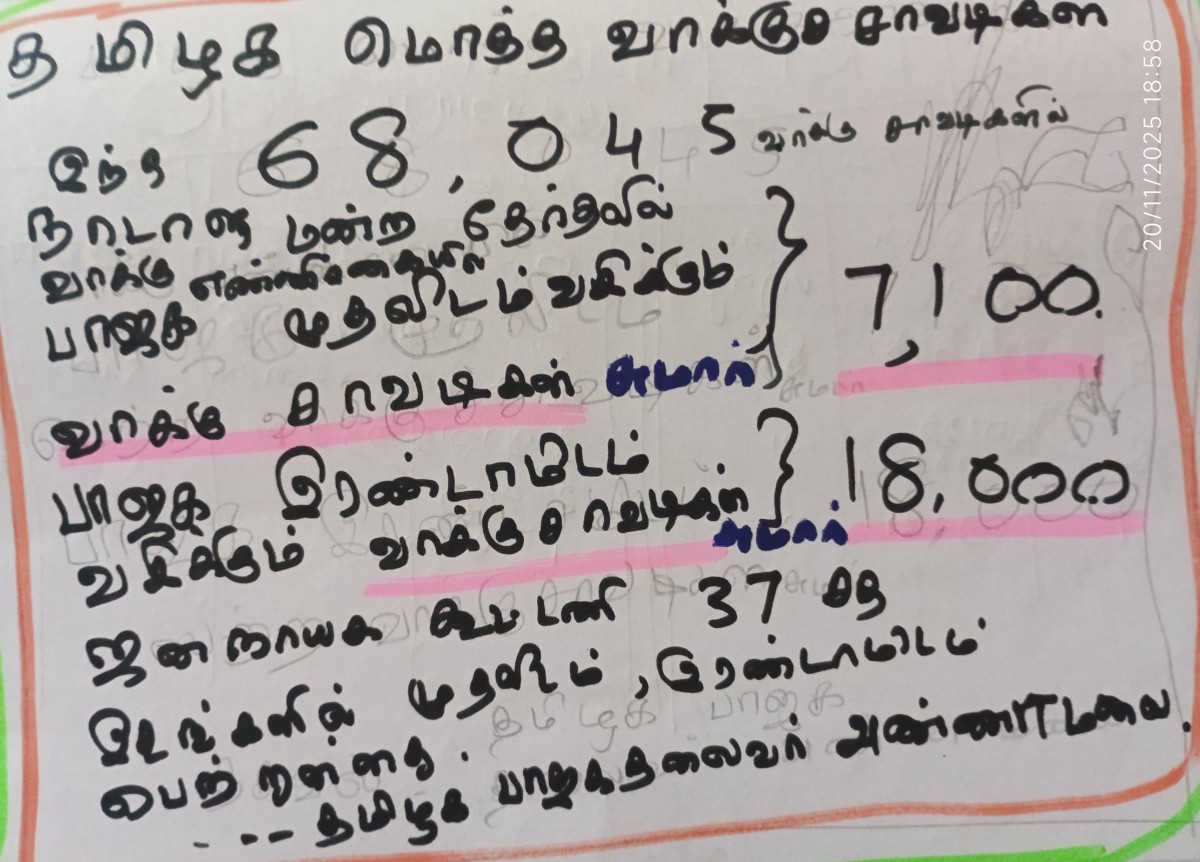 தமிழக மொத்த வாக்குச சாவடிகள
இந்த 68,045 வாக்கு சாவடிகளில்
நாடாளு மன்ற தேர்தலில்
வாக்கு எண்ணிக்கையில்
பாஜக முதலிடம் வகிக்கும்
வாக்கு சாவடிகள் சுமார் 7,100.
பாஜக இரண்டாமிடம்
வகிக்கும் வாக்கு சாவடிகள் சுமார் 18,000
ஜனநாயக கூட்டணி 37 சத
இடங்களில் முதலிடம், இரண்டாமிடம்
பெற்றுள்ளது.
... தமிழக பாஜகதலைவர் அண்ணாமலை.
20/11/2025 18:58